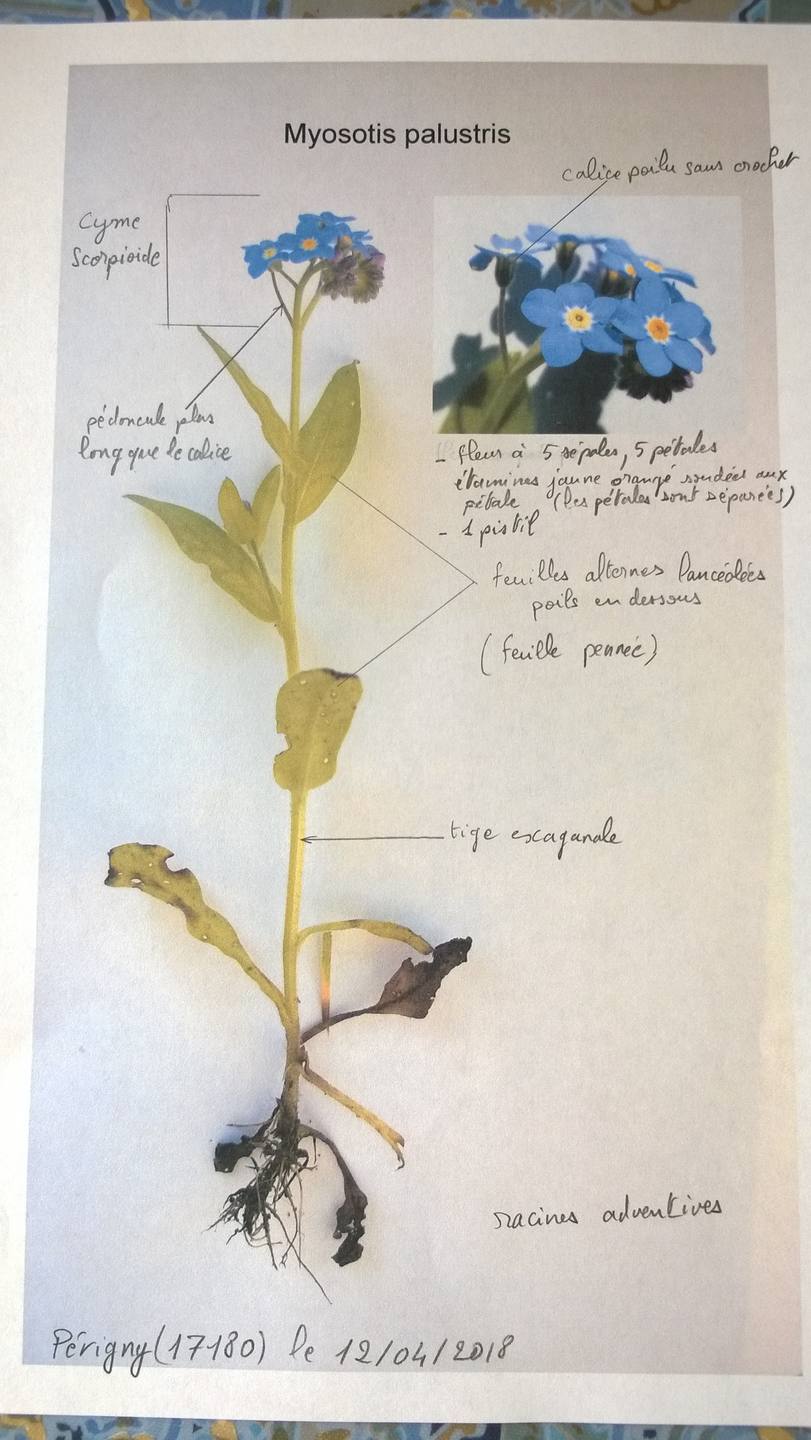 Myosotis palustris
calice poilu sans crochet
Cyme
Scorpioide
pédoncule plus
long que le calice
- fleur à 5 sépales, 5 pétales
étamines jaune orangé soudées aux
pétale (les pétales sont séparées)
- 1 pistil
feuilles alternes lancéolées
poils en dessous
(feuille pennée)
tige exaganale
racines adventives
Périgny(17180) le 12/04/2018